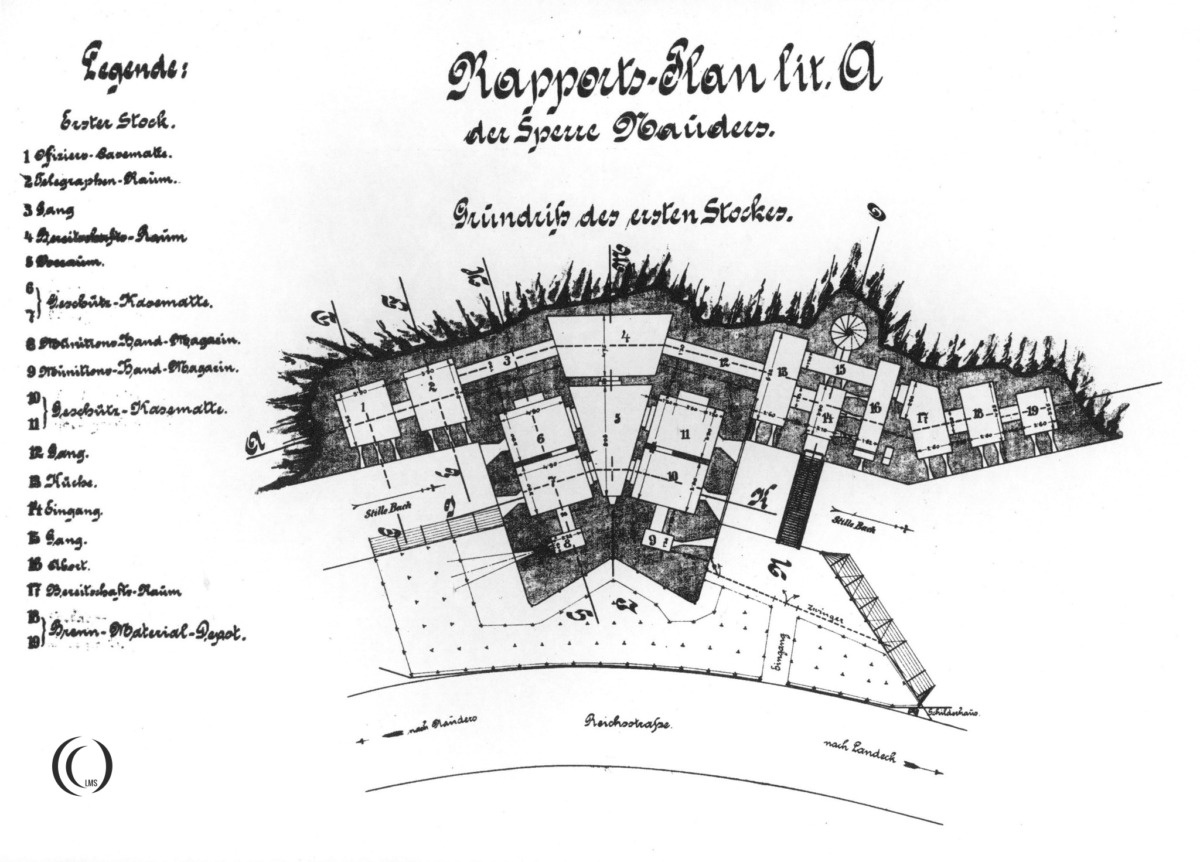 Legende:
Erster Stock.
1 Offiziers-Casematte.
2 Telegraphen-Raum.
3 Gang
4 Bereitschafts-Raum
5 Vorraum.
6
7 } Geschütz-Kasematte.
8 Munitions-Hand-Magazin.
9 Munitions-Hand-Magazin.
10
11 } Geschütz-Kasematte.
12 Gang.
13 Küche.
14 Eingang.
15 Gang.
16 Abort.
17 Bereitschafts-Raum
18
19 } Brenn-Material-Depot.
Rapports-Plan lit. A
der Sperre Nauders.
Grundriß des ersten Stockes.
1
2
3
4
5
6
7
8
9
10
11
12
13
14
15
16
17
18
19
Stille Bach
Stille Bach
Zwinger
Eingang
Schilderhaus.
nach Nauders
Reichsstraße.
nach Landeck
LMS